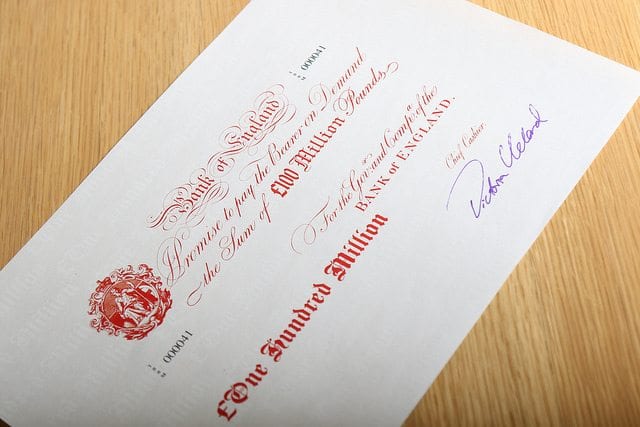 000041
Bank of England
Promise to pay the Bearer on Demand
the Sum of £100 Million Pounds
For the Govr and Compa of the
BANK of ENGLAND.
Chief Cashier.
Victoria Cleland
000041
£One Hundred Million